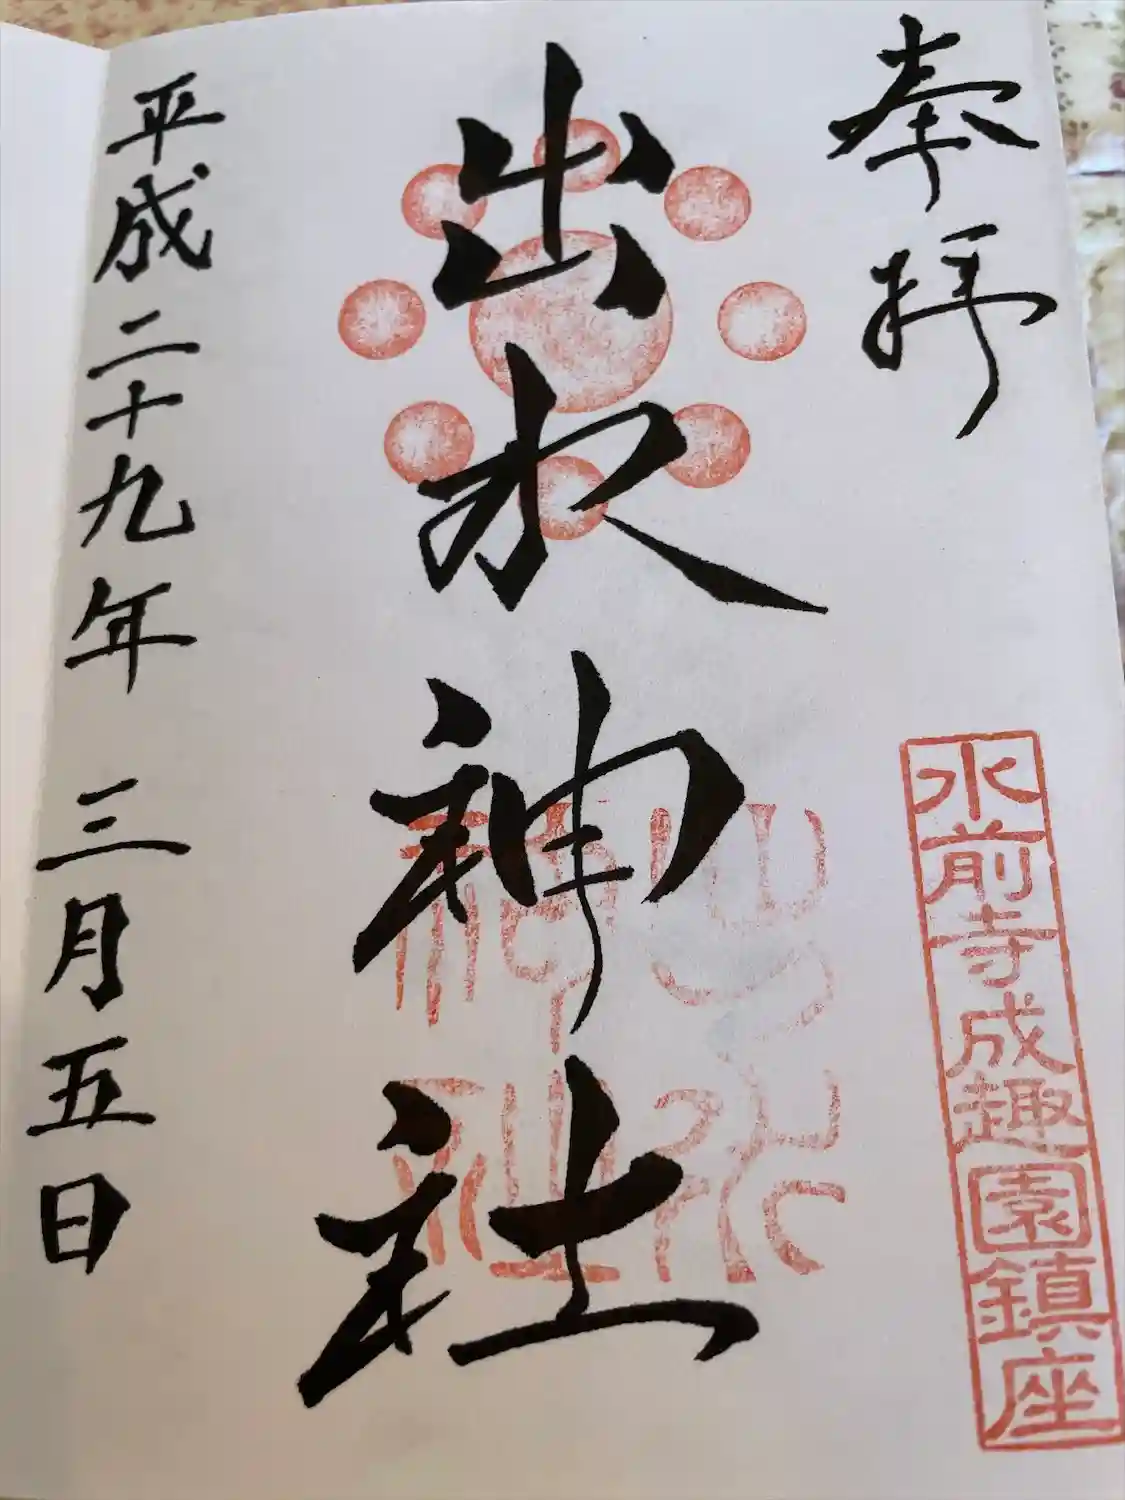 奉拝
水前寺成趣園鎮座
出水神社
出水
神社
平成二十九年 三月五日